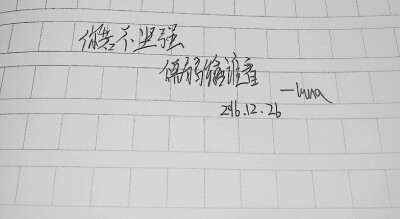 你若不坚强
懦弱给谁看
—luna
2016.12.26